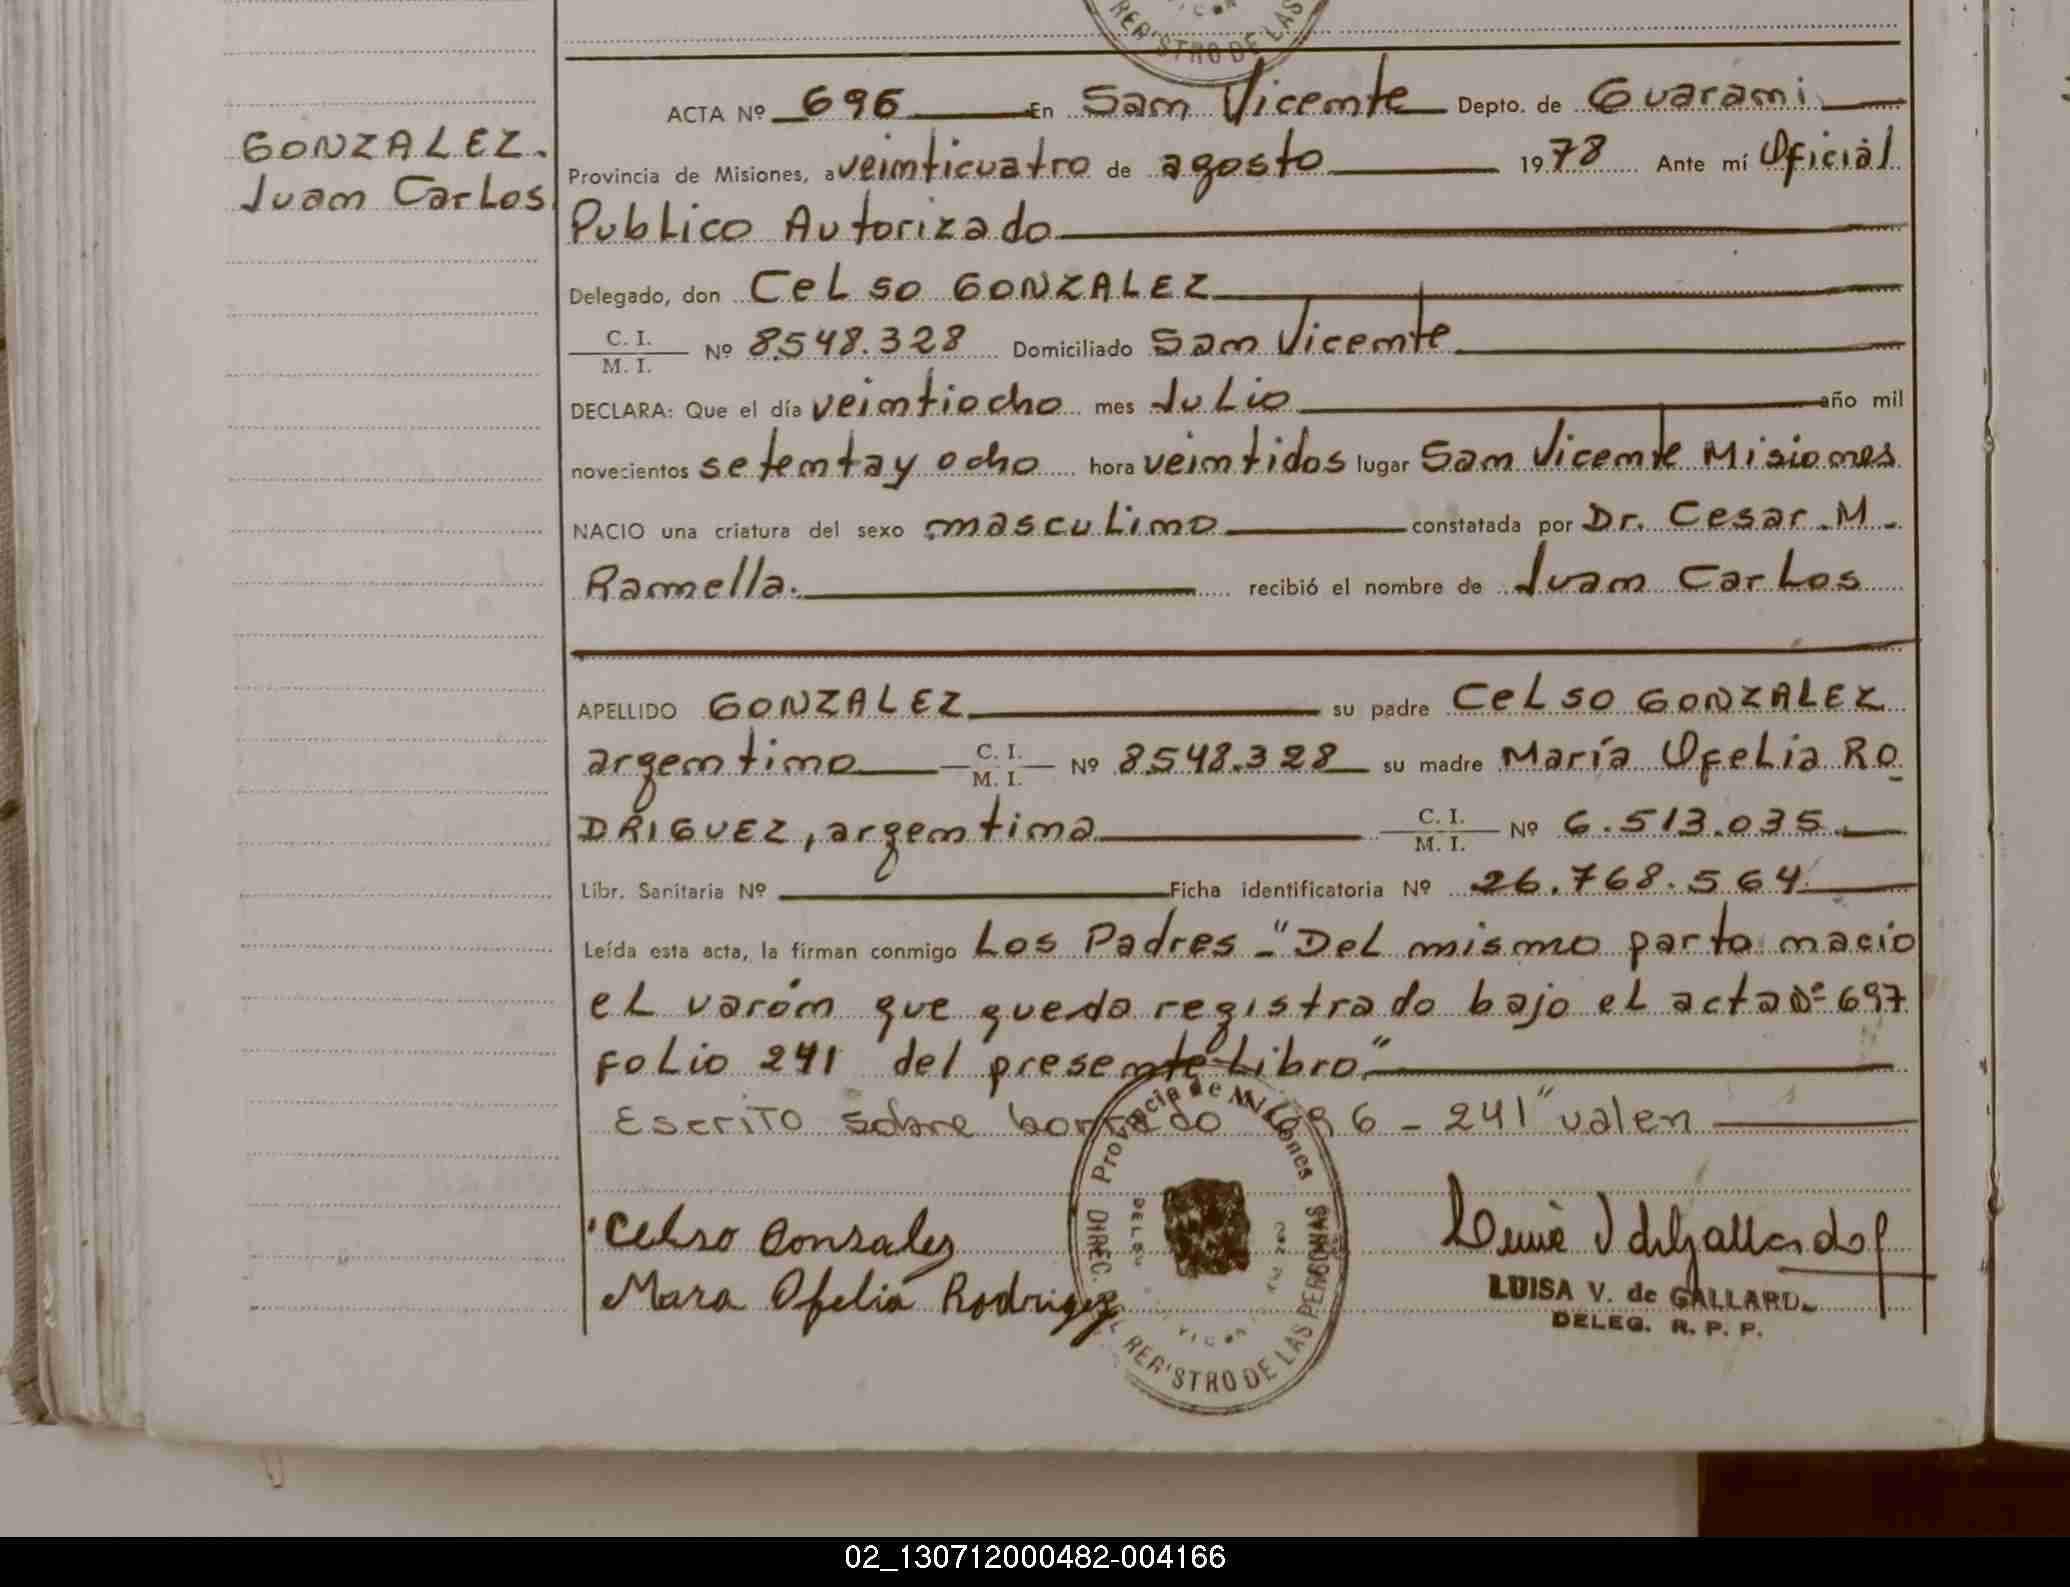 REG'STRO DE LAS
ACTA Nº 696 En San Vicente Depto. de Guarani
GONZALEZ.
Juan Carlos
Provincia de Misiones, a veinticuatro de agosto 1978 Ante mí Oficial
Publico Autorizado
Delegado, don Celso GONZALEZ
C. I.
M. I. Nº 8548.328 Domiciliado San Vicente
DECLARA: Que el día veintiocho mes Julio año mil
novecientos setenta y ocho hora veintidos lugar San Vicente Misiones
NACIO una criatura del sexo masculino constatada por Dr. Cesar M.
Ramella. recibió el nombre de Juan Carlos
APELLIDO GONZALEZ su padre Celso GONZALEZ
argentino C. I. M. I. Nº 8548.328 su madre María Ofelia RO
DRIGUEZ, argentina C. I. M. I. Nº 6.513.035
Libr. Sanitaria Nº Ficha identificatoria Nº 26.768.564
Leída esta acta, la firman conmigo Los Padres - "Del mismo parto nacio
el varón que queda registrado bajo el acta Nº 697
folio 241 del presente Libro"
Escrito sobre borrado 696 - 241" valen
Provincia de Misiones
DIREC. REG'STRO DE LAS PERSONAS
Celso Gonzalez
Mara Ofelia Rodriguez
LUISA V. de GALLARD
DELEG. R. P. P.
02_130712000482-004166